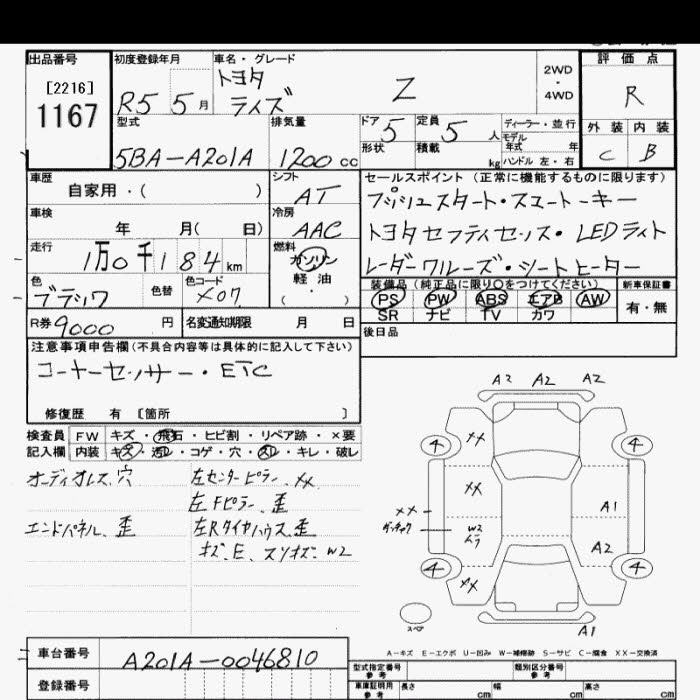 出品番号
[2216]
1167
初度登録年月
R5 5月
車名・グレード
トヨタ
ライズ
Z
2WD
・
4WD
評価点
R
外装 内装
C B
型式
5BA-A201A
排気量
1200 cc
ドア 5
定員 5 人
形状
積載 kg
ディーラー・並行
モデル
年式 年
ハンドル 左・右
車歴
自家用・( )
シフト
AT
車検
年 月( 日)
冷房
AAC
走行
1万0千184 km
燃料
ガソリン
・
軽油
・
( )
色
ブラック
色替
色コード
X07
セールスポイント (正常に機能するものに限ります)
プッシュスタート・スマートーキー
トヨタセフティセンス・LEDライト
レーダークルーズ・シートヒーター
装備品 (純正品に限り○をつけてください)
PS PW ABS エアB AW
SR ナビ TV カワ
新車保証書
有・無
R券 9000 円
名変通知期限 月 日
後日品
注意事項申告欄(不具合内容等は具体的に記入して下さい)
コーナーセンサー・ETC
修復歴 有 [箇所 ]
検査員 FW キズ・飛石・ヒビ割・リペア跡・×要
記入欄 内装 キズ・汚レ・コゲ・穴・スレ・キレ・破レ
オーディオレス、穴
エンドパネル、歪
左センターピラー、XX
左Fピラー、歪
左Rタイヤハウス、歪
キズ、E、スリキズ、W2
A2 A2 A2
4 XX 4
XX
XX
ガッチャク
W2
ムラ
A1
A2
4 XX 4
スペア
A1
A-キズ E-エクボ U-凹み W-補修跡 S-サビ C-腐食 XX-交換済
車台番号
A201A-0046810
登録番号
型式指定番号
参考
類別区分番号
参考
車庫証明用
参考
長さ cm 幅 cm 高さ cm